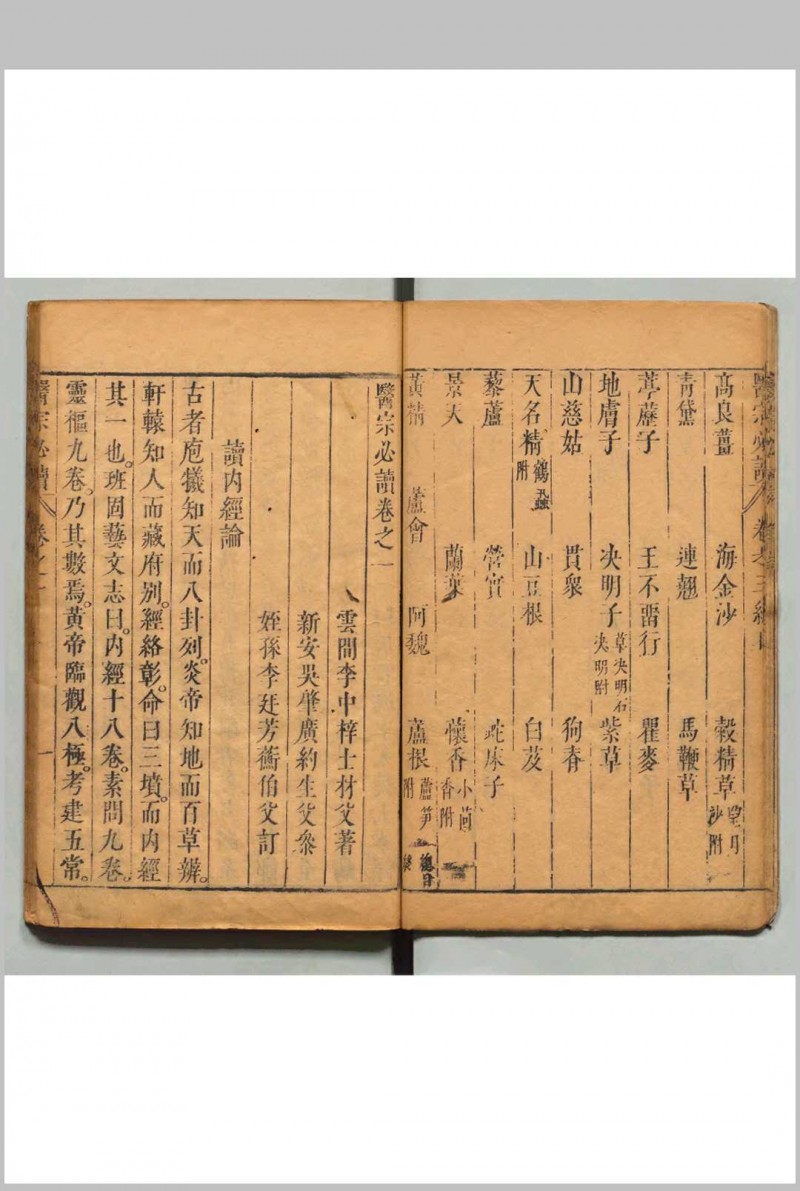 高良薑 海金沙 穀精草 望月沙附
青黛 連翹 馬鞭草
葶藶子 王不畱行 瞿麥
地膚子 决明子 草决明石决明附 紫草
山慈姑 貫衆 狗脊
天名精 鶴虱附 山豆根 白芨
藜蘆 營實 蛇床子
景天 蘭葉 懷香 小茴香附
黃精 蘆會 阿魏 蘆根 蘆笋附
總目終
醫宗必讀卷之一
雲間李中梓士材父著
新安吳肇廣約生父參
姪孫李廷芳蘅伯父訂
讀内經論
古者庖犧知天而八卦列。炎帝知地而百草辨。
軒轅知人而藏府別。經絡彰。命曰三墳。而内經
其一也。班固藝文志曰。内經十八卷。素問九卷。
靈樞九卷。乃其數焉。黃帝臨觀八極。考建五常。
醫宗必讀 卷之一 一